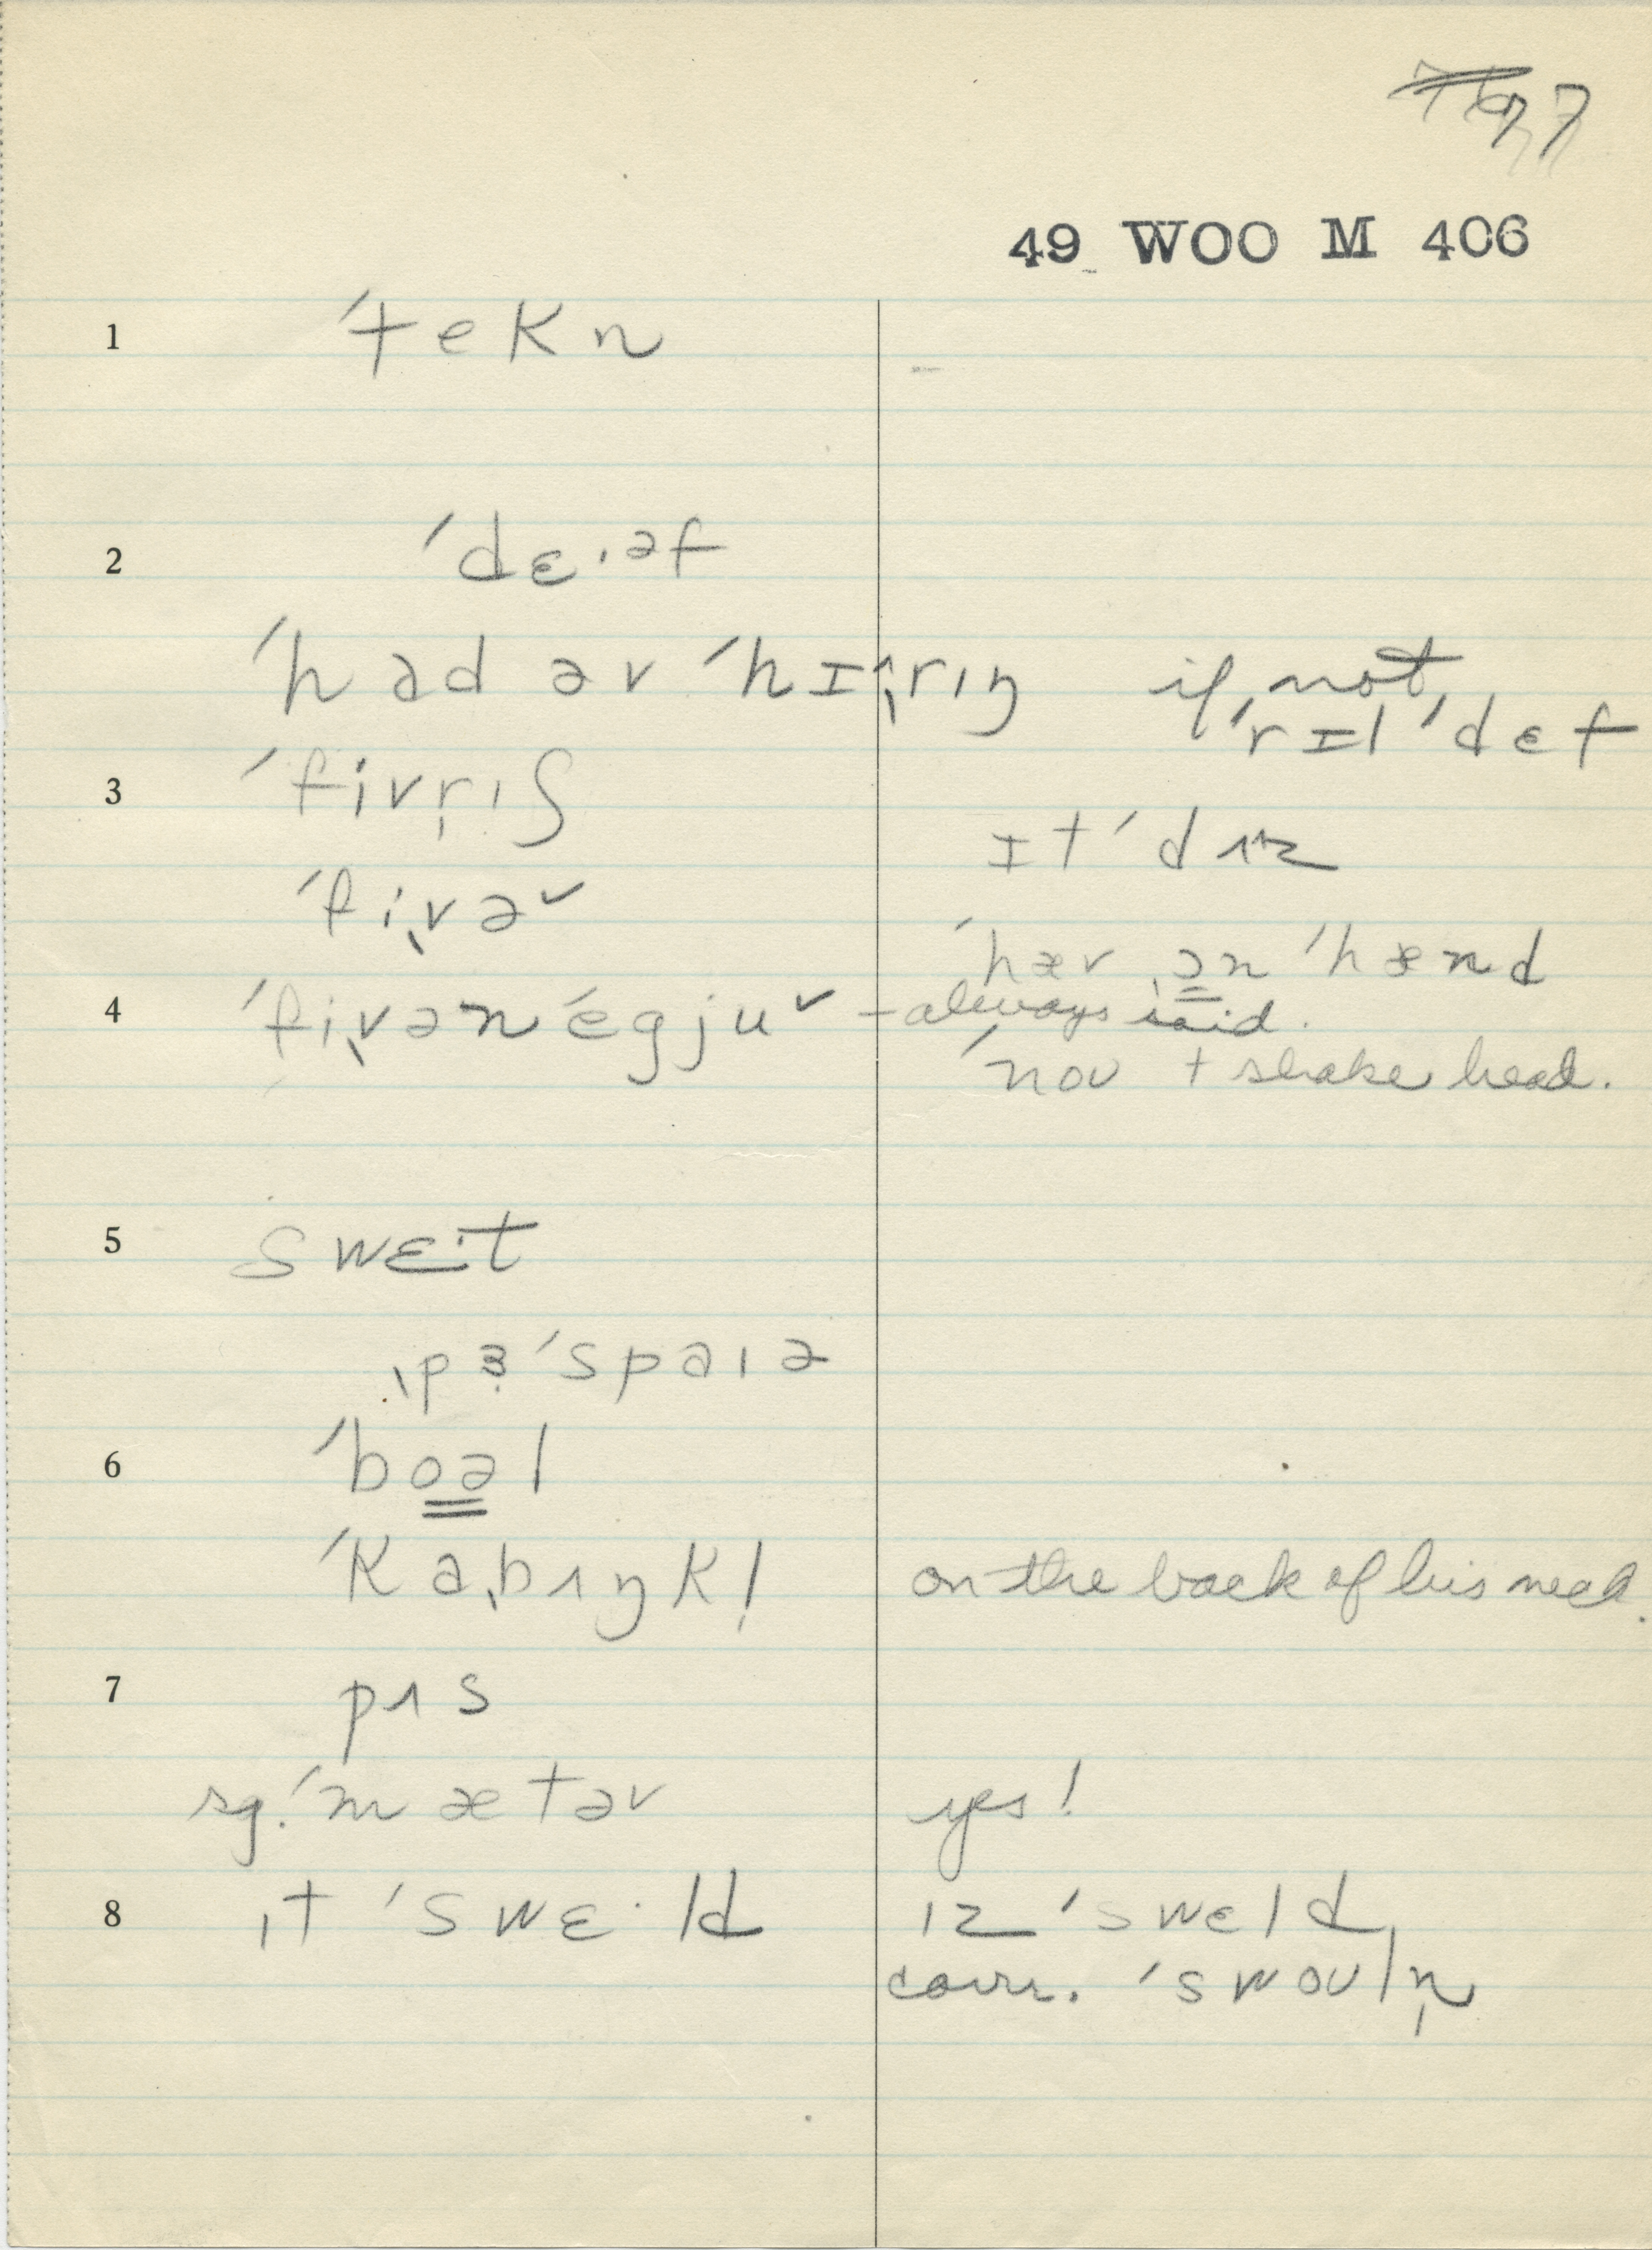 77
49 WOO M 406
1 ˈtekn
2 ˈdɛ·əf
ˈhad əv ˈhɪ˄rɪŋ if not, ˈrɪl ˈdɛf
3 ˈfivrɪʃ
ɪt ˈdʌz
ˈfivə˅
ˈhæv ən ˈhænd
4 ˈfivənˈegju˅ – always said.
ˈnoʊ + shake head.
5 swɛ·t
ˌpɜˈspaɪə
6 ˈboəl
ˈkaˌbʌŋk! on the back of his neck.
7 pʌs
sg. ˈmætəv yes!
8 ɪt ˈswɛ·ld ɪz ˈswɛld
corr. ˈswoʊln̩